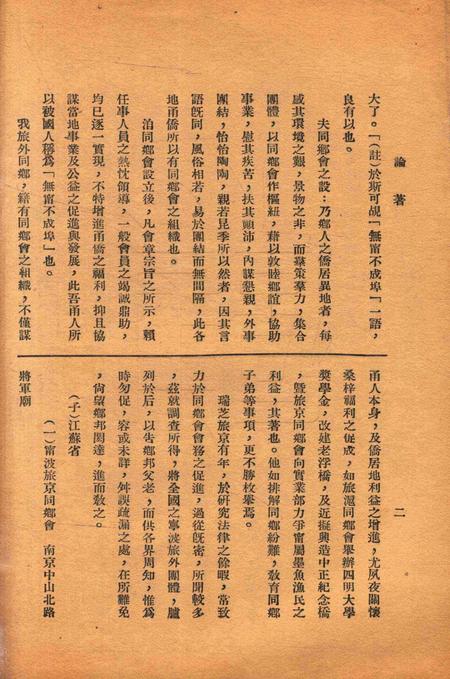 論著
大了。「(註)於斯可覘「無甯不成埠」一語,
良有以也。
夫同鄉會之設:乃鄉人之僑居異地者,每
感其環境之艱,景物之非,而羣策羣力,集合
團體,以同鄉會作樞紐,藉以敦睦鄉誼,協助
事業,慰其疾苦,扶其顚沛,內謀懇親,外事
團結,怡怡陶陶,親若昆季所以然者,因其言
語旣同,風俗相若,易於團結而無間隔,此各
地甬僑所以有同鄉會之組織也。
洎同鄉會設立後,凡會章宗旨之所示,賴
任事人員之熱忱領導,一般會員之竭誠鼎助,
均已逐一實現,不特增進甬僑之福利,抑且協
謀當地事業及公益之促進與發展,此吾甬人所
以被國人稱爲「無甯不成埠」也。
我旅外同鄉,藉有同鄉會之組織,不僅謀
二
甬人本身,及僑居地利益之增進,尤夙夜關懷
桑梓福利之促成,如旅滬同鄉會舉辦四明大學
獎學金,改建老浮橋,及近擬興造中正紀念橋
,曁旅京同鄉會向實業部力爭甯屬墨魚漁民之
利益,其著也。他如排解同鄉紛難,敎育同鄉
子弟等事項,更不勝枚舉焉。
瑞芝旅京有年,於硏究法律之餘暇,嘗致
力於同鄉會會務之促進,過從旣密,所聞較多
,茲就調查所得,將全國之寧波旅外團體,臚
列於后,以吿鄉邦父老,而供各界周知,惟爲
時匆促,容或未詳,舛誤疏漏之處,在所難免
,尙望鄉邦閎達,進而敎之。
(子)江蘇省
(一)甯波旅京同鄉會 南京中山北路
將軍廟